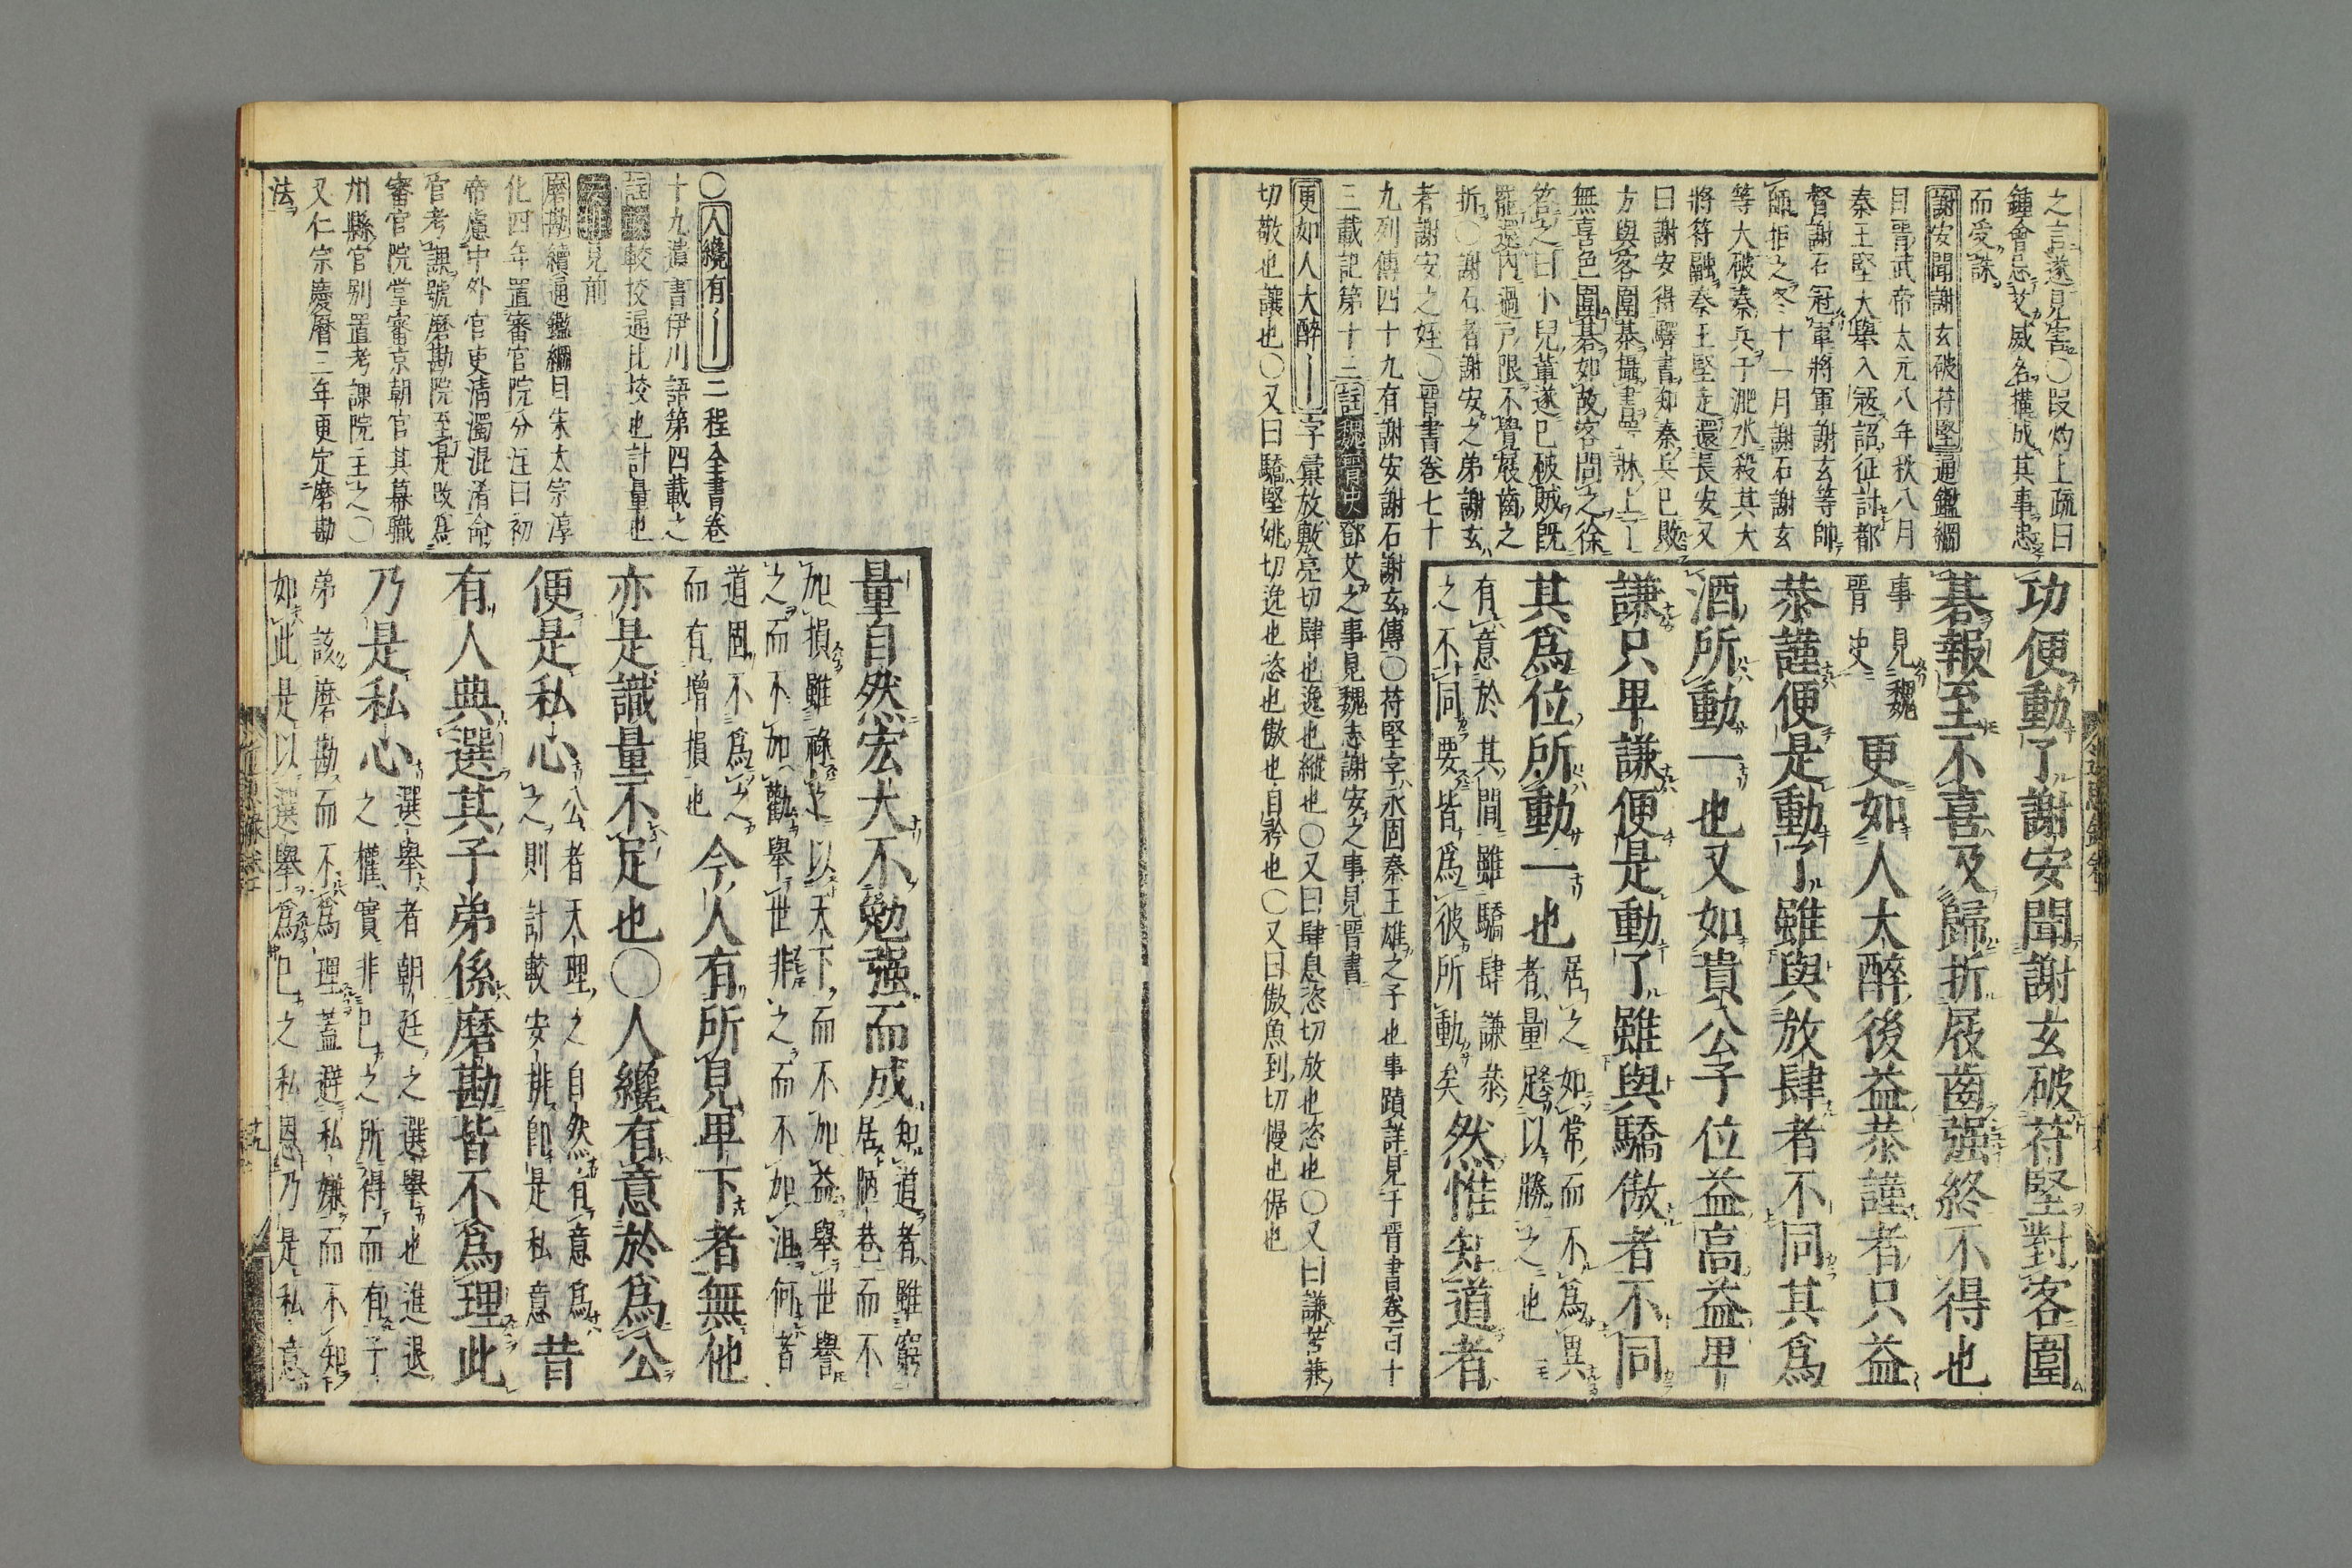 之言遂見害○段灼上疏曰
鍾會忌艾威名搆成其事忠
而受誅
謝安聞謝玄破苻堅通鑑綱
目晉武帝太元八年秋八月
秦王堅大舉入寇詔征討都
督謝石冠軍將軍謝玄等帥
師拒之冬十一月謝石謝玄
等大破秦兵于淝水殺其大
將符融秦王堅走還長安又
曰謝安得驛書知秦兵已敗
方與客圍棊攝書置牀上了
無喜色圍碁如故客問之徐
答之曰小兒輩遂已破賊既
罷還內過戶限不覺屐齒之
折○謝石者謝安之弟謝玄
者謝安之姪○晉書卷七十
九列傳四十九有謝安謝石謝玄傳○苻堅字永固秦王雄之子也事蹟詳見于晉書卷百十
三載記第十三註魏晉史鄧艾之事見魏志謝安之事見晉書
更如人大醉字彙放敷亮切肆也逸也縱也○又曰肆息恣切放也恣也○又曰謙苦兼
切敬也讓也○又曰驕堅姚切逸也恣也傲也自矜也○又曰傲魚到切慢也倨也
功便動了謝安聞謝玄破苻堅對客圍
碁報至不喜及歸折屐齒强終不得也
事見魏
晉史
更如人大醉後益恭謹者只益
恭謹便是動了雖與放肆者不同其爲
酒所動一也又如貴公子位益高益卑
謙只卑謙便是動了雖與驕傲者不同
其爲位所動一也
居之如常而不爲異
者量足以勝之也
有意於其間雖驕肆謙恭
之不同要皆爲彼所動矣
然惟知道者
量自然宏大不勉强而成
知道者雖窮
居陋巷而不
加損雖祿之以天下而不加益舉世譽
之而不加勸舉世非之而不加沮何者
道固不爲之
而有增損也
今人有所見卑下者無他
亦是識量不足也○人纔有意於爲公
便是私心
公者天理之自然有意爲
之則計較安排卽是私意
昔
有人典選其子弟係磨勘皆不爲理此
乃是私心
選舉者朝廷之選舉也進退
之權實非已之所得而有子
弟該磨勘而不爲理蓋避私嫌而不知
如此是以選舉爲已之私恩乃是私意
○人纔有二程全書卷
十九遺書伊川語第四載之
較挍通比挍也計量也
見前
磨勘續通鑑綱目宋太宗淳
化四年置審官院分注曰初
帝慮中外官吏清濁混淆命
官考課號磨勘院至是改爲
審官院掌審京朝官其幕職
州縣官別置考課院主之○
又仁宗慶曆三年更定磨勘
法